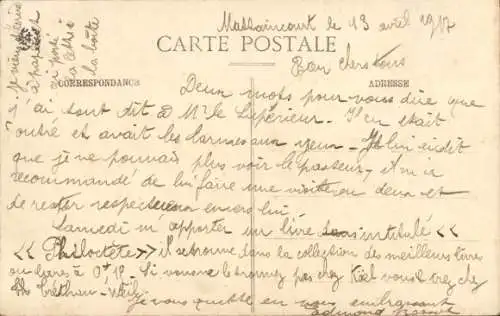 Mattaincourt le 13 avril 1917
CARTE POSTALE
CORRESPONDANCE
ADRESSE
Bien chers tous
Deux mots pour vous dire que
j'ai tout dit à Mr le Supérieur. Il en était
outré et avait les larmes aux yeux. Je lui ai dit
que je ne pouvais plus voir le pasteur, il m'a
recommandé de lui faire une visite ou deux et
de rester respectueux envers lui.
Samedi m'apporter un livre intitulé <<
<< Philoctète >> il se trouve dans la collection des meilleurs livres
ou livres à 0f,15. Si vous ne le trouvez pas chez Kiel vous irez chez
Créthan-Weil.
Je vous quitte en vous embrassant